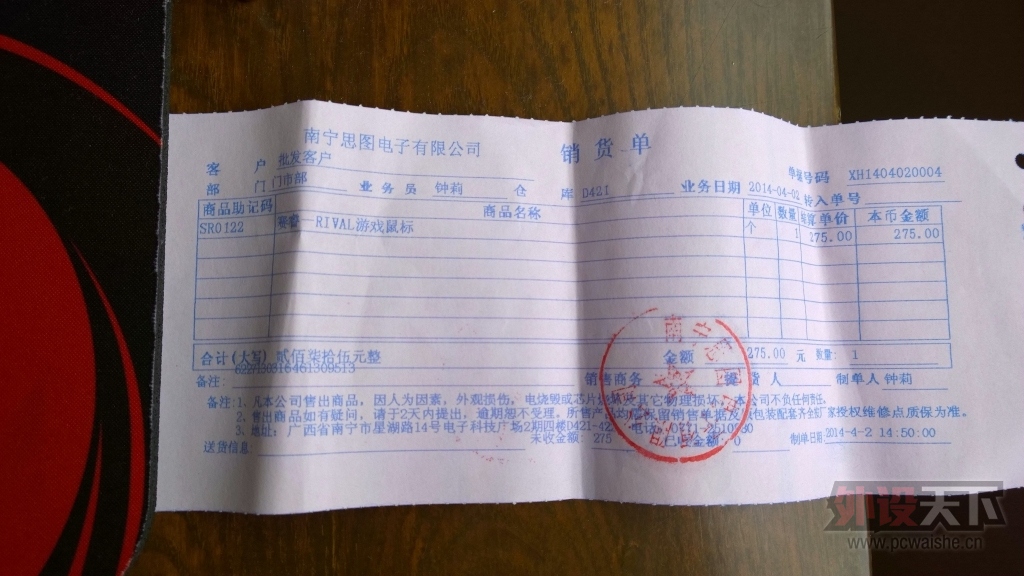 南宁思图电子有限公司 销货单
客 户 批发客户 单据号码 XH1404020004
部 门 门市部 业务员 钟莉 仓 库 D421 业务日期 2014-04-02 转入单号
商品助记码 商品名称 单位 数量 单价 本币金额
SR0122 赛睿 RIVAL游戏鼠标 个 1 275.00 275.00
合计(大写) 贰佰柒拾伍元整 金额 275.00 元 数量: 1
6299130316461309513
备注: 销售商务 提 货 人 制单人 钟莉
备注:1、凡本公司售出商品，因人为因素，外观损伤，电烧毁或芯片烧 其它物理损坏，本公司不负任何责任。
2、售出商品如有疑问，请于2天内提出，逾期恕不受理。所售产 均需保留销售单据及 包装配套齐全厂家授权维修点质保为准。
3、地址：广西省南宁市星湖路14号电子科技广场2期四楼D421-42 电话:0771-25
送货信息 未收金额: 275 已收金额: 0 制单日期:2014-4-2 14:50:00
外设天下
www.pcwaishe.cn